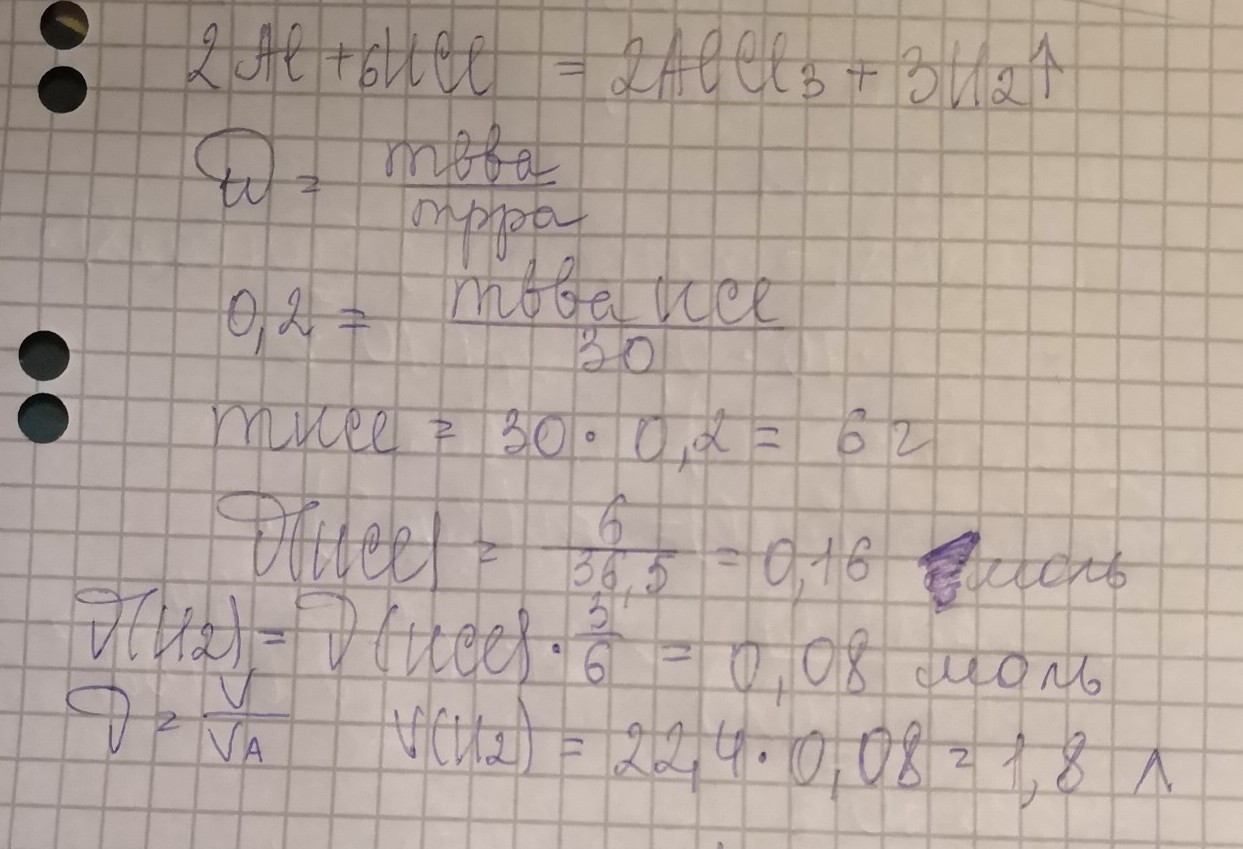 2Al + 6HCl = 2AlCl₃ + 3H₂↑
ω = mвва / mрра
0,2 = mвва HCl / 30
mHCl = 30 · 0,2 = 6 г
ν(HCl) = 6 / 36,5 = 0,16 моль
ν(H₂) = ν(HCl) · 3/6 = 0,08 моль
ν = V / VA V(H₂) = 22,4 · 0,08 = 1,8 л